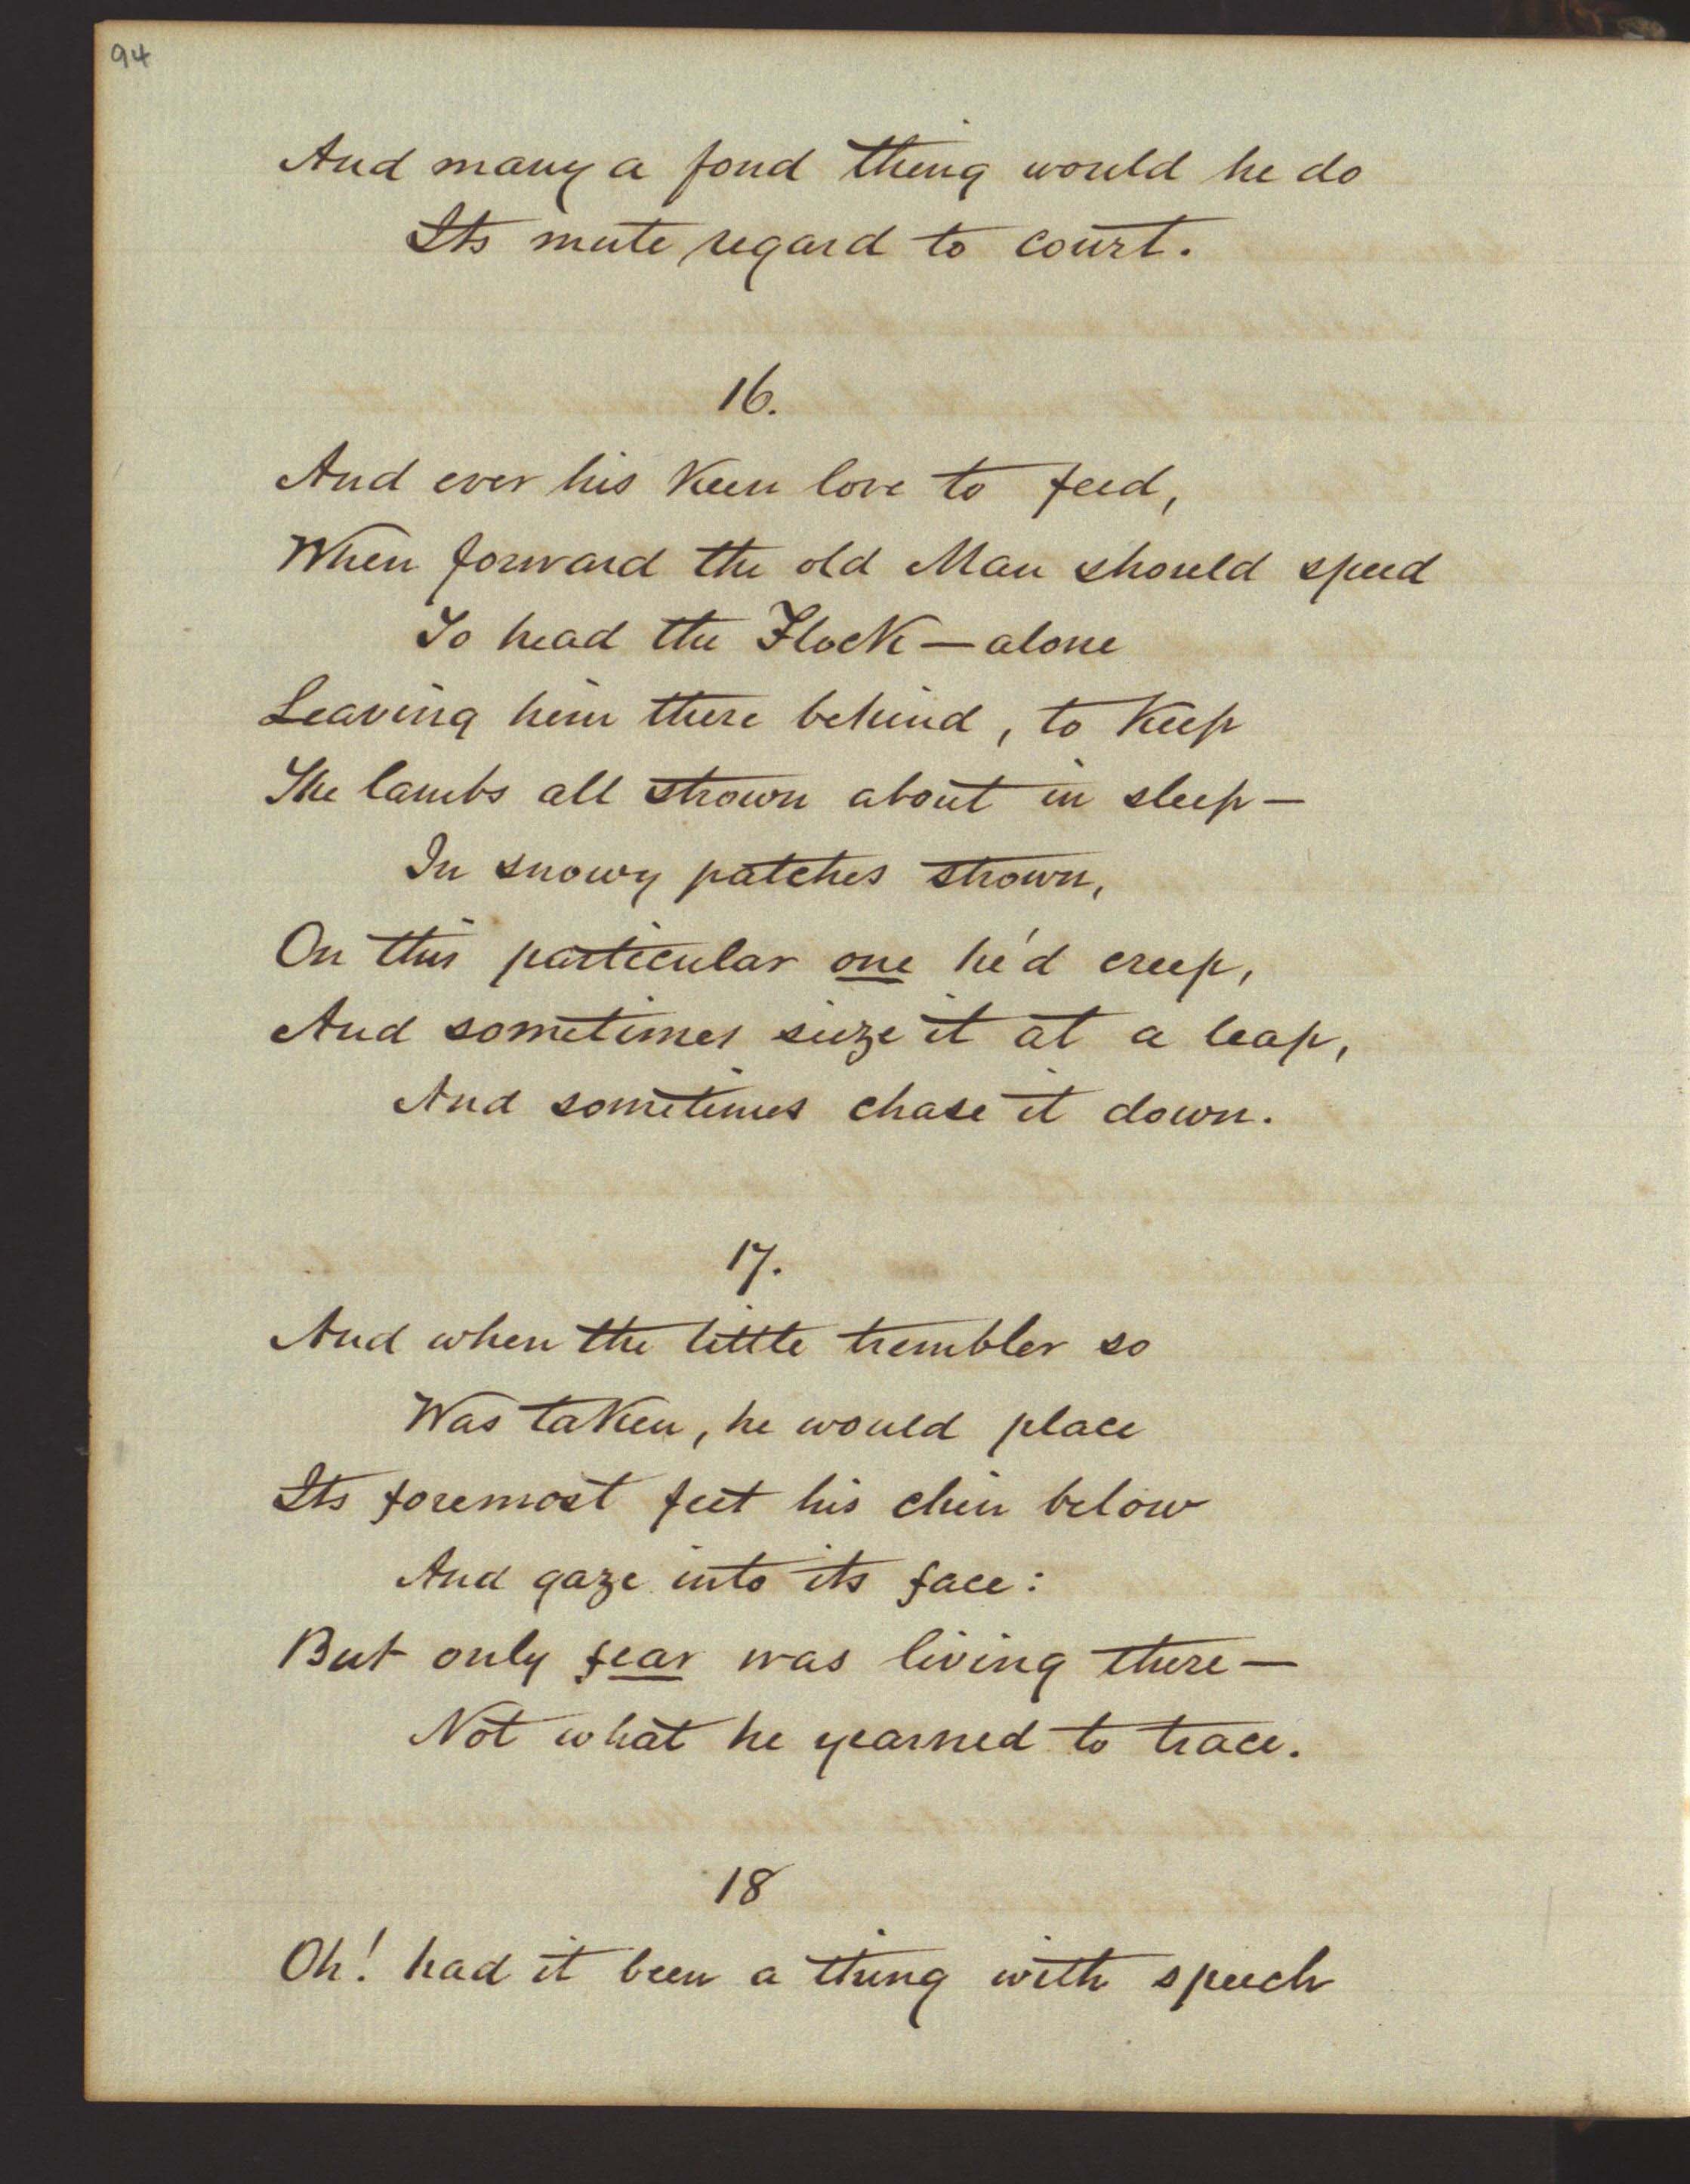 94
And many a fond thing would he do
Its mute regard to court.
16.
And ever his keen love to feed,
When forward the old Man should speed
To head the Flock — alone
Leaving him there behind, to keep
The lambs all strown about in sleep —
In snowy patches strown,
On this particular one he'd creep,
And sometimes sieze it at a leap,
And sometimes chase it down.
17.
And when the little trembler so
Was taken, he would place
Its foremost feet his chin below
And gaze into its face:
But only fear was living there —
Not what he yearned to trace.
18
Oh! had it been a thing with speech